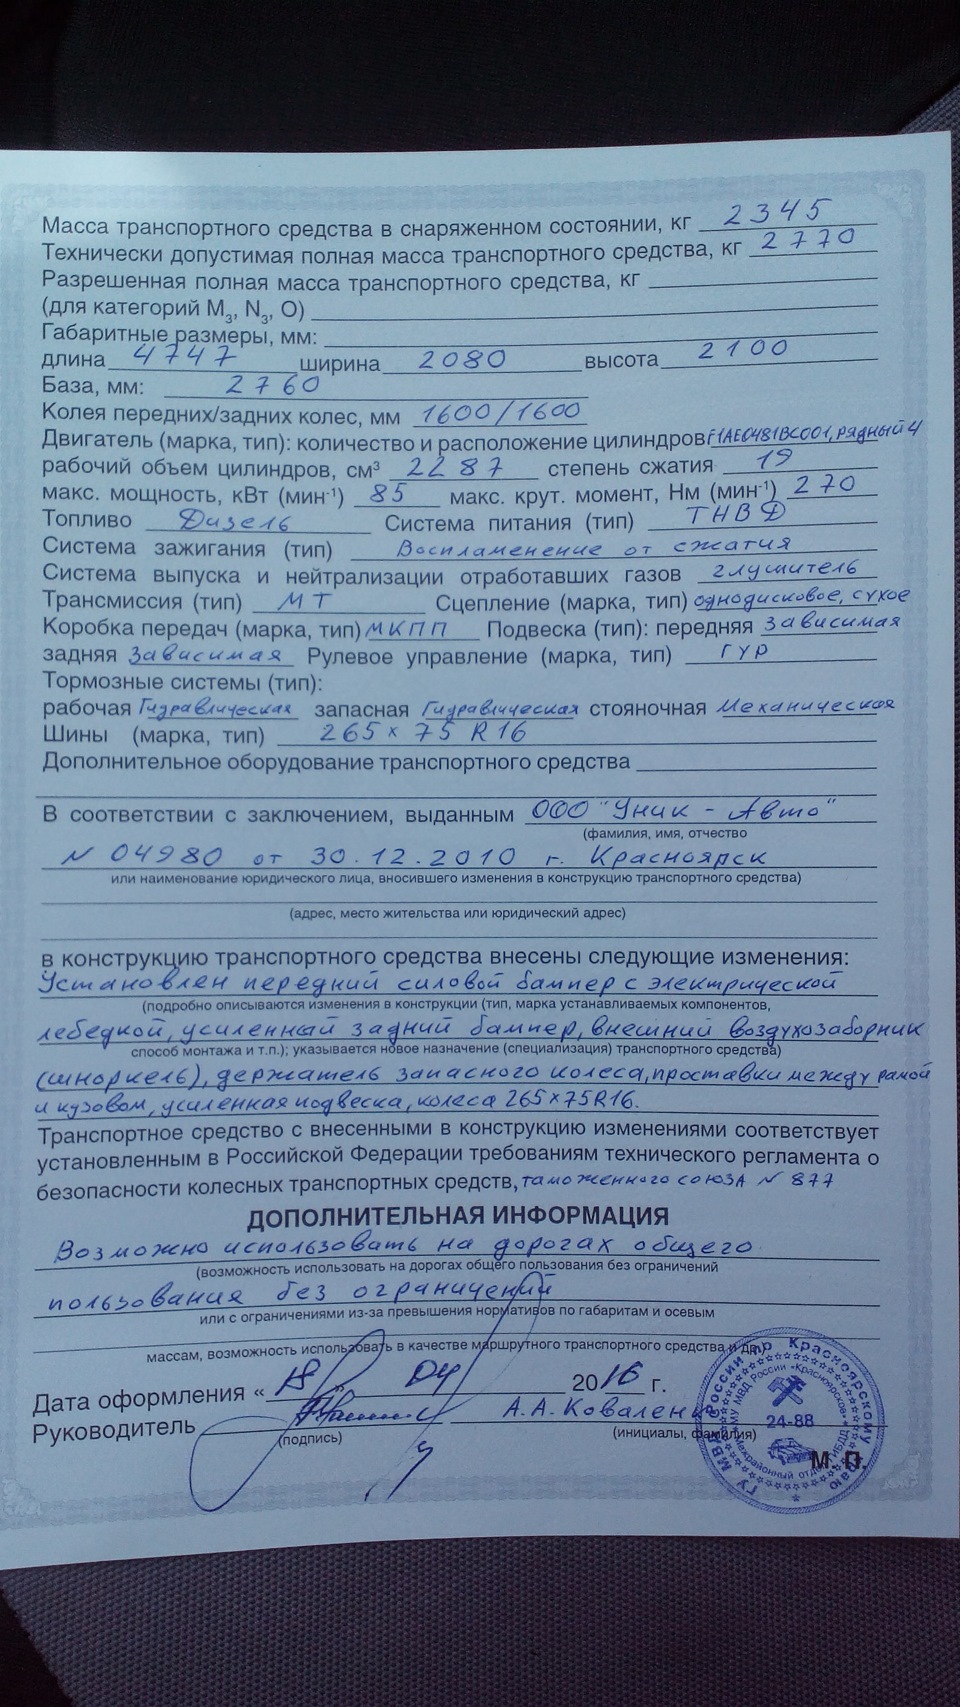 Масса транспортного средства в снаряженном состоянии, кг 2345
Технически допустимая полная масса транспортного средства, кг 2770
Разрешенная полная масса транспортного средства, кг
(для категорий M3, N3, O)
Габаритные размеры, мм:
длина 4747 ширина 2080 высота 2100
База, мм: 2760
Колея передних/задних колес, мм 1600/1600
Двигатель (марка, тип): количество и расположение цилиндров F1AE0481BC001, рядный 4
рабочий объем цилиндров, см³ 2287 степень сжатия 19
макс. мощность, кВт (мин-1) 85 макс. крут. момент, Нм (мин-1) 270
Топливо Дизель Система питания (тип) ТНВД
Система зажигания (тип) Воспламенение от сжатия
Система выпуска и нейтрализации отработавших газов глушитель
Трансмиссия (тип) МТ Сцепление (марка, тип) однодисковое, сухое
Коробка передач (марка, тип) МКПП Подвеска (тип): передняя Зависимая
задняя Зависимая Рулевое управление (марка, тип) ГУР
Тормозные системы (тип):
рабочая Гидравлическая запасная Гидравлическая стояночная Механическая
Шины (марка, тип) 265×75 R16
Дополнительное оборудование транспортного средства
В соответствии с заключением, выданным ООО "Уник - Авто"
(фамилия, имя, отчество
N 04980 от 30.12.2010 г. Красноярск
или наименование юридического лица, вносившего изменения в конструкцию транспортного средства)
(адрес, место жительства или юридический адрес)
в конструкцию транспортного средства внесены следующие изменения:
Установлен передний силовой бампер с электрической
(подробно описываются изменения в конструкции (тип, марка устанавливаемых компонентов,
лебедкой, усиленный задний бампер, внешний воздухозаборник
способ монтажа и т.п.); указывается новое назначение (специализация) транспортного средства)
(шноркель), держатель запасного колеса, проставки между рамой
и кузовом, усиленная подвеска, колеса 265×75R16.
Транспортное средство с внесенными в конструкцию изменениями соответствует
установленным в Российской Федерации требованиям технического регламента о
безопасности колесных транспортных средств, таможенного союза N 877
ДОПОЛНИТЕЛЬНАЯ ИНФОРМАЦИЯ
Возможно использовать на дорогах общего
(возможность использовать на дорогах общего пользования без ограничений
пользования без ограничений
или с ограничениями из-за превышения нормативов по габаритам и осевым
массам, возможность использовать в качестве маршрутного транспортного средства и др.)
Дата оформления « 18 04 2016 г.
Руководитель А.А. Коваленко
(подпись) (инициалы, фамилия)
М. П.
ГУ МВД России по Красноярскому краю
МУ МВД России «Красноярское»
24-88
Межрайонный отдел ГИБДД